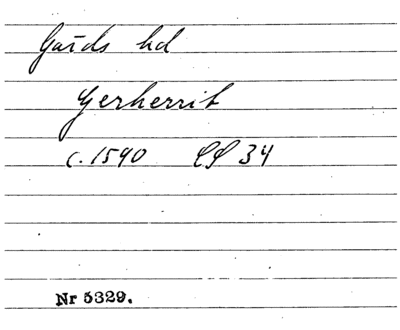 Gärds hd
Gerherrit
c. 1590 LS 34
Nr 5329.